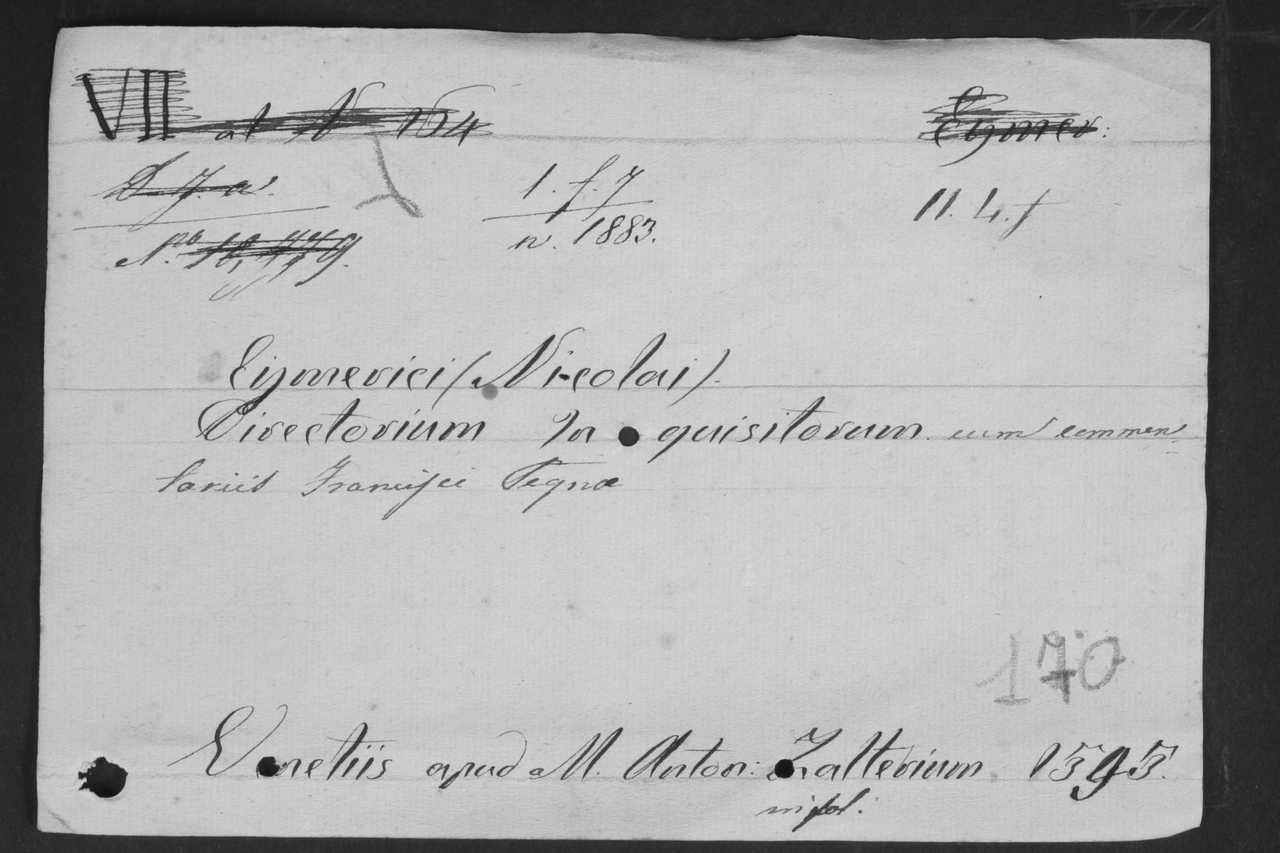 VII al N 164 Eymer:
D. J. a. 1. f. 7 11. 4. f
N.ro 10,779. n. 1883.
Eymerici (Nicolai).
Directorium In quisitorum cum commen
tariis Francisci Pegnæ
170
Venetiis apud M. Anton: Zalterium 1595.
in fol.